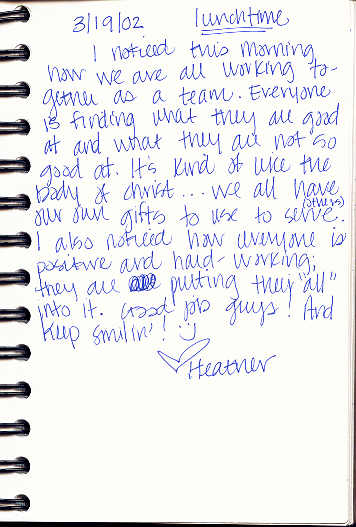 3/19/02 lunchtime
I noticed this morning
how we are all working to-
gether as a team. Everyone
is finding what they are good
at and what they are not so
good at. It's kind of like the
body of christ... we all have
our own gifts to use to serve (others).
I also noticed how everyone is
positive and hard-working;
they are putting they "all"
into it. Good job guys! And
keep smilin'! :)
Heather